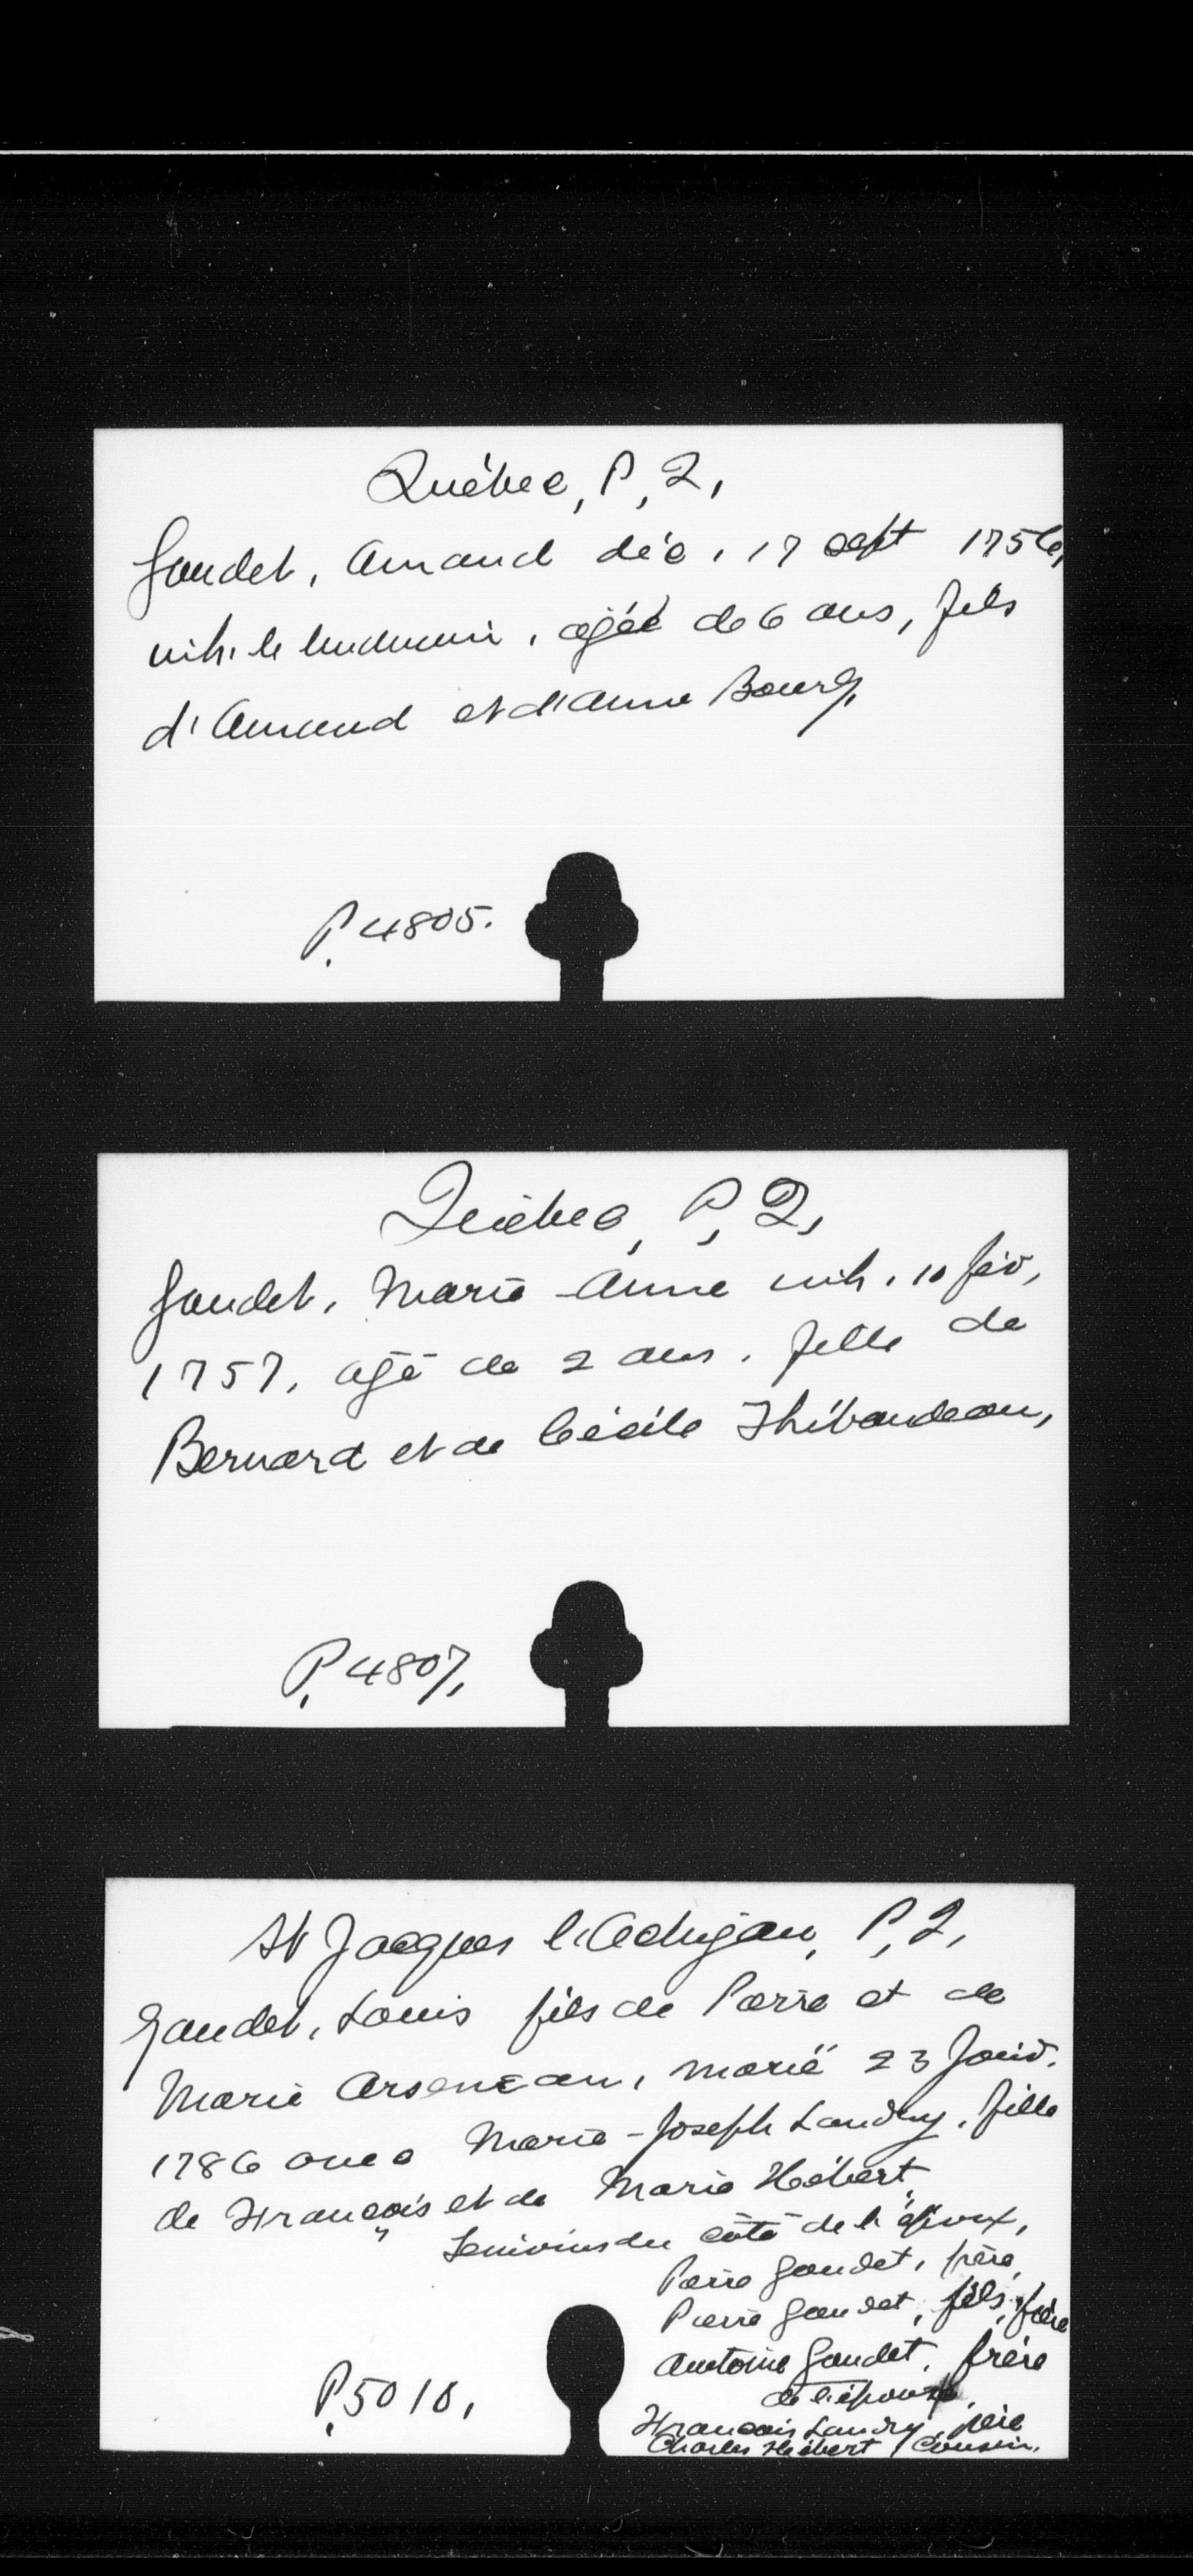 Québec, P, Q,
Gaudet, Amand déc. 17 sept 1756,
inh. le lendemain, agéé de 6 ans, fils
d'Amand et d'Anne Bourg,
P. 4805.
Québec, P, Q,
Gaudet, Marie-Anne inh. 10 fév,
1757, agé de 2 ans. fille de
Bernard et de Cécile Thibaudeau,
P. 4807,
St Jacques l'Achigan, P, Q,
Gaudet, Louis fils de Pierre et de
Marie Arseneau, marié 23 Janv.
1786 avec Marie-Joseph Landry, fille
de François et de Marie Hébert,
Témoins du côté de l'époux,
Pierre Gaudet, père,
Pierre Gaudet, fils, frère
Antoine Gaudet, frère
de l'épouse,
François Landry, père
Charles Hébert, Cousin.
P. 5010,